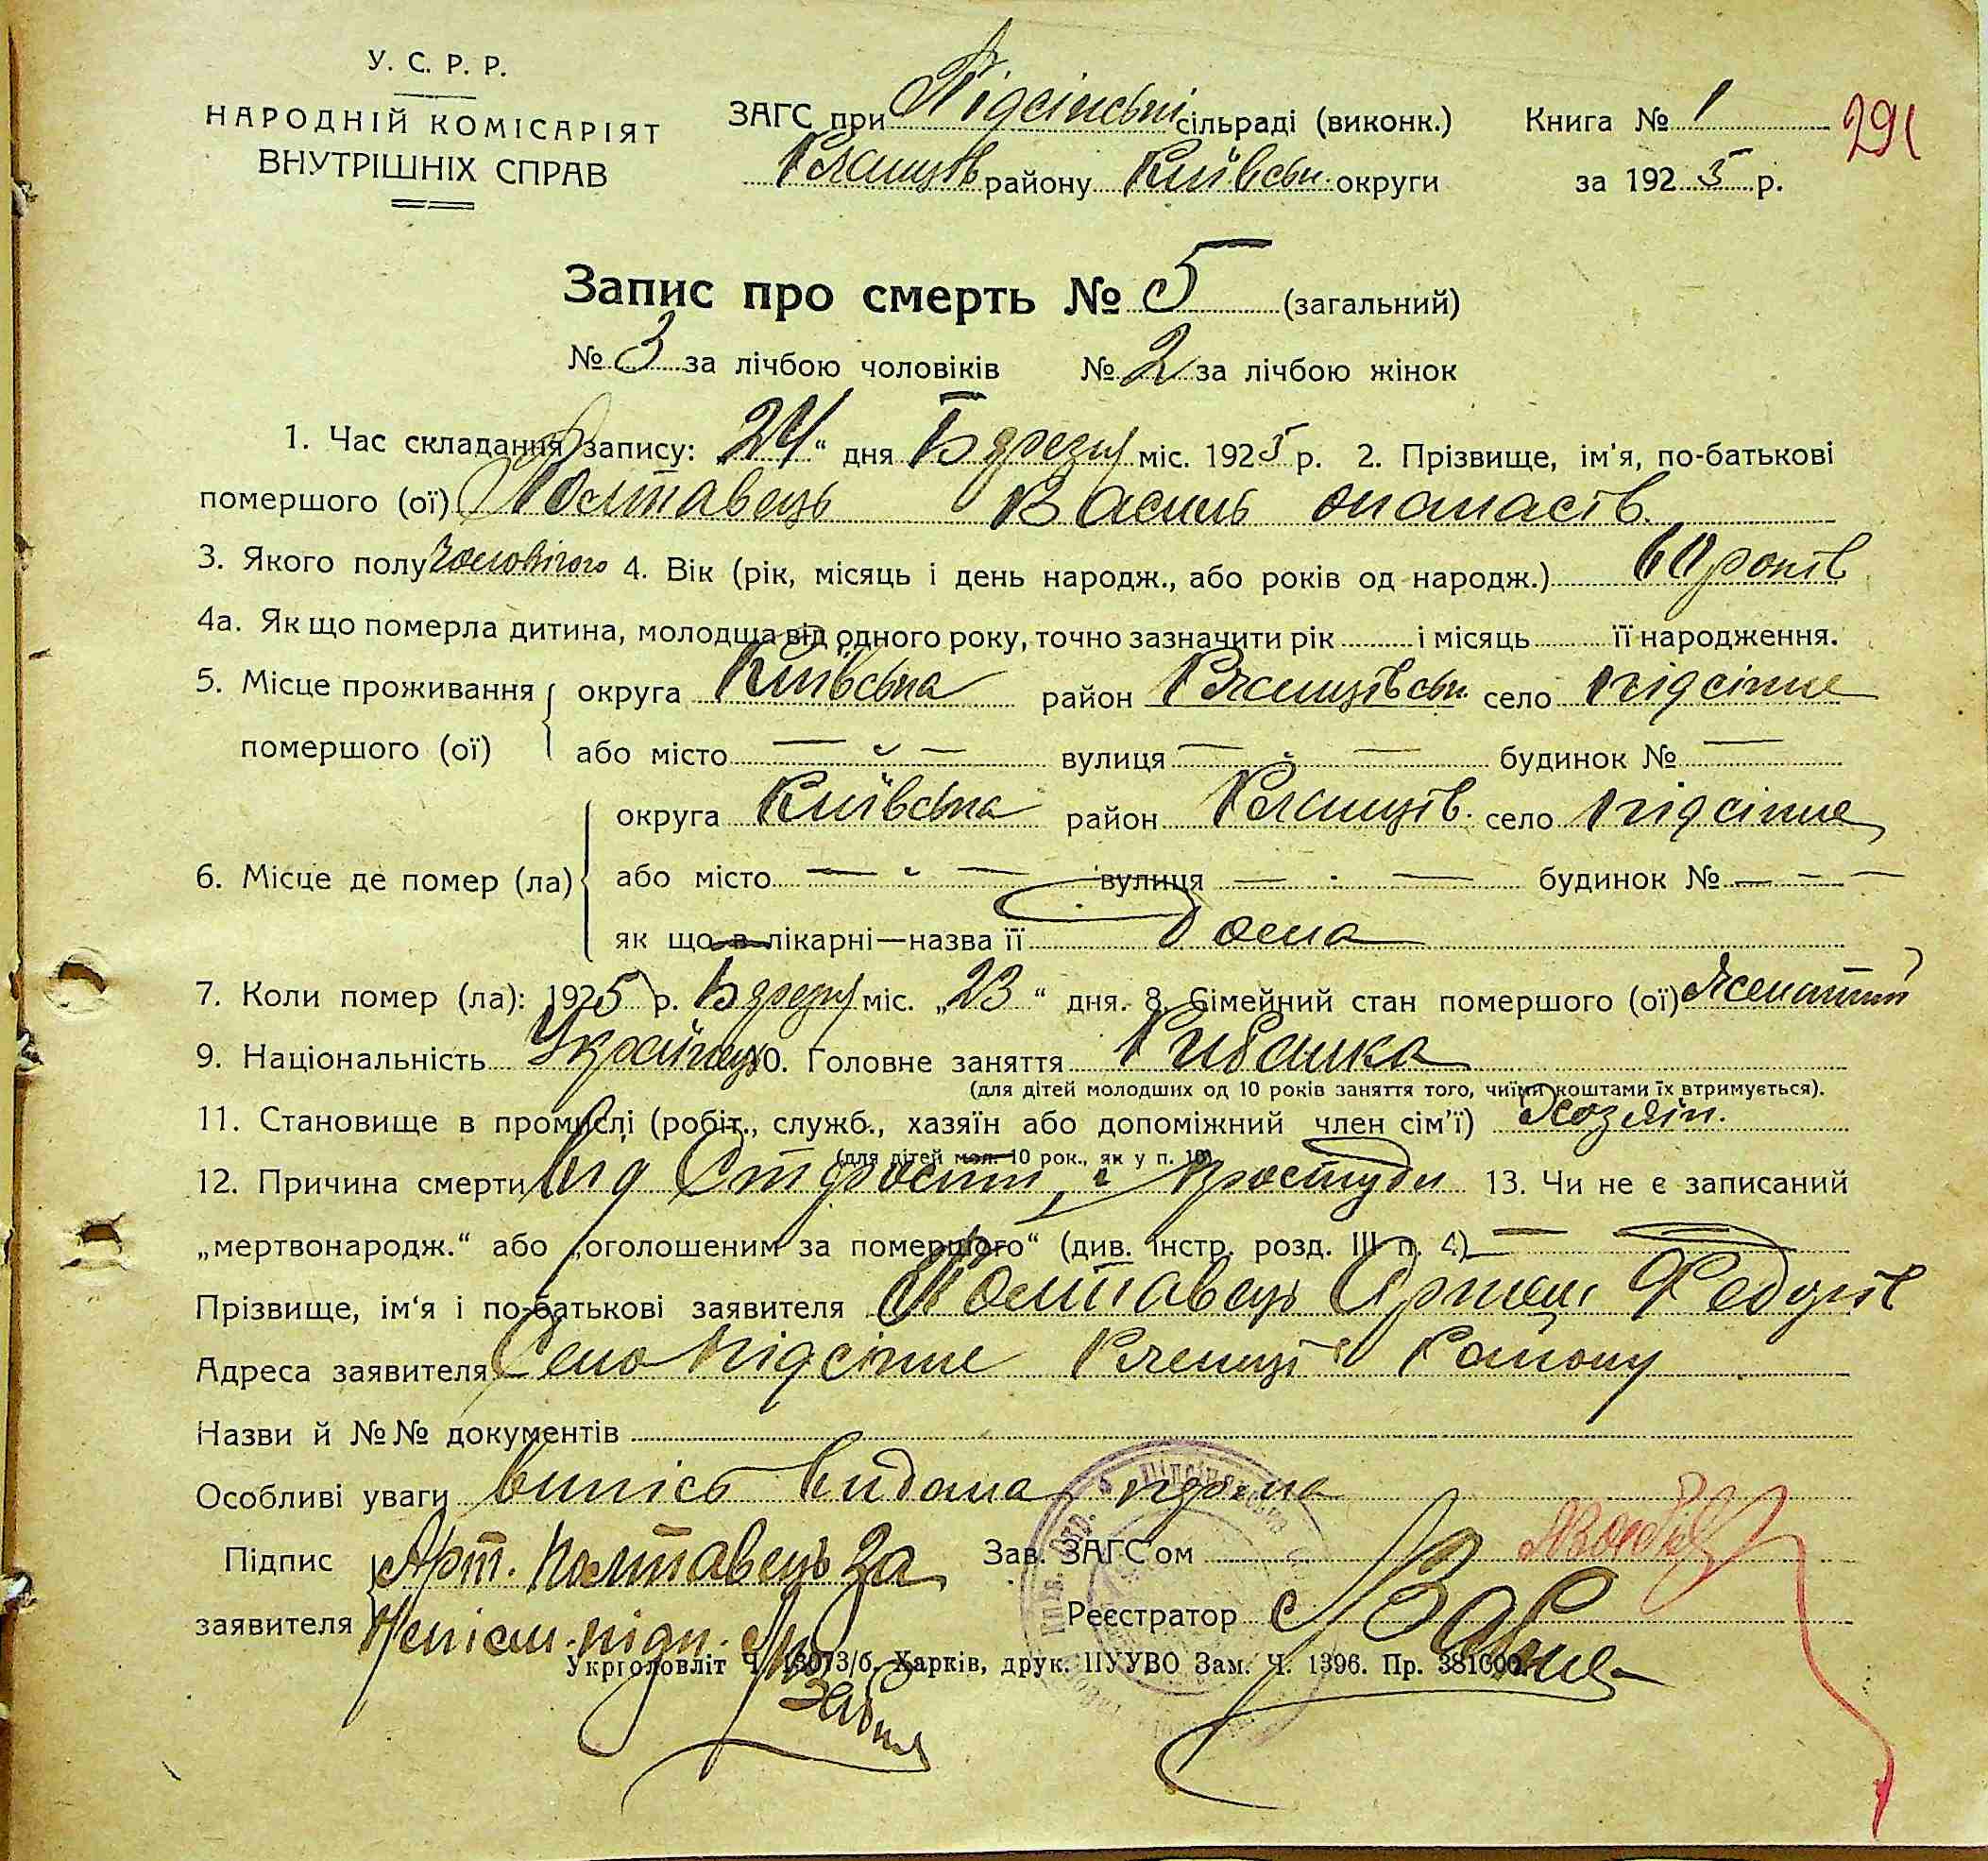 У. С. Р. Р.
НАРОДНІЙ КОМІСАРІЯТ
ВНУТРІШНІХ СПРАВ
ЗАГС при Підсінській сільраді (виконк.) Книга № 1 291
району Київськ. округи за 1925 р.
Запис про смерть № 5 (загальний)
№ 3 за лічбою чоловіків № 2 за лічбою жінок
1. Час складання запису: „24“ дня міс. 1925 р. 2. Прізвище, ім'я, по-батькові
помершого (ої) Полтавець Василь Опанасів
3. Якого полу чоловічого 4. Вік (рік, місяць і день народж., або років од народж.) 60 років
4а. Як що померла дитина, молодща від одного року, точно зазначити рік і місяць її народження.
5. Місце проживання округа Київська район село Підсінне
помершого (ої) або місто вулиця будинок №
округа Київська район село Підсінне
6. Місце де помер (ла) або місто вулиця будинок №
як що в лікарні—назва її дома
7. Коли помер (ла): 1925 р. міс. „23“ дня. 8. Сімейний стан помершого (ої)
9. Національність Українець 10. Головне заняття Рибалка
(для дітей молодших од 10 років заняття того, чиїми коштами їх втримується).
11. Становище в промислі (робіт., служб., хазяїн або допоміжний член сім'ї) Хозяїн.
(для дітей мол. 10 рок., як у п. 10)
12. Причина смерти від Старости, і простуди 13. Чи не є записаний
„мертвонародж.“ або „оголошеним за померлого“ (див. інстр. розд. III п. 4)
Прізвище, ім'я і по-батькові заявителя Полтавець Артем
Адреса заявителя Село Підсінне Району
Назви й №№ документів
Особливі уваги випісь видана
Підпис Арт. Полтавець за Зав. ЗАГС'ом
заявителя Реєстратор
Укрголовліт Ч. 13073/б. Харків, друк. ПУУВО Зам. Ч. 1396. Пр. 381000.